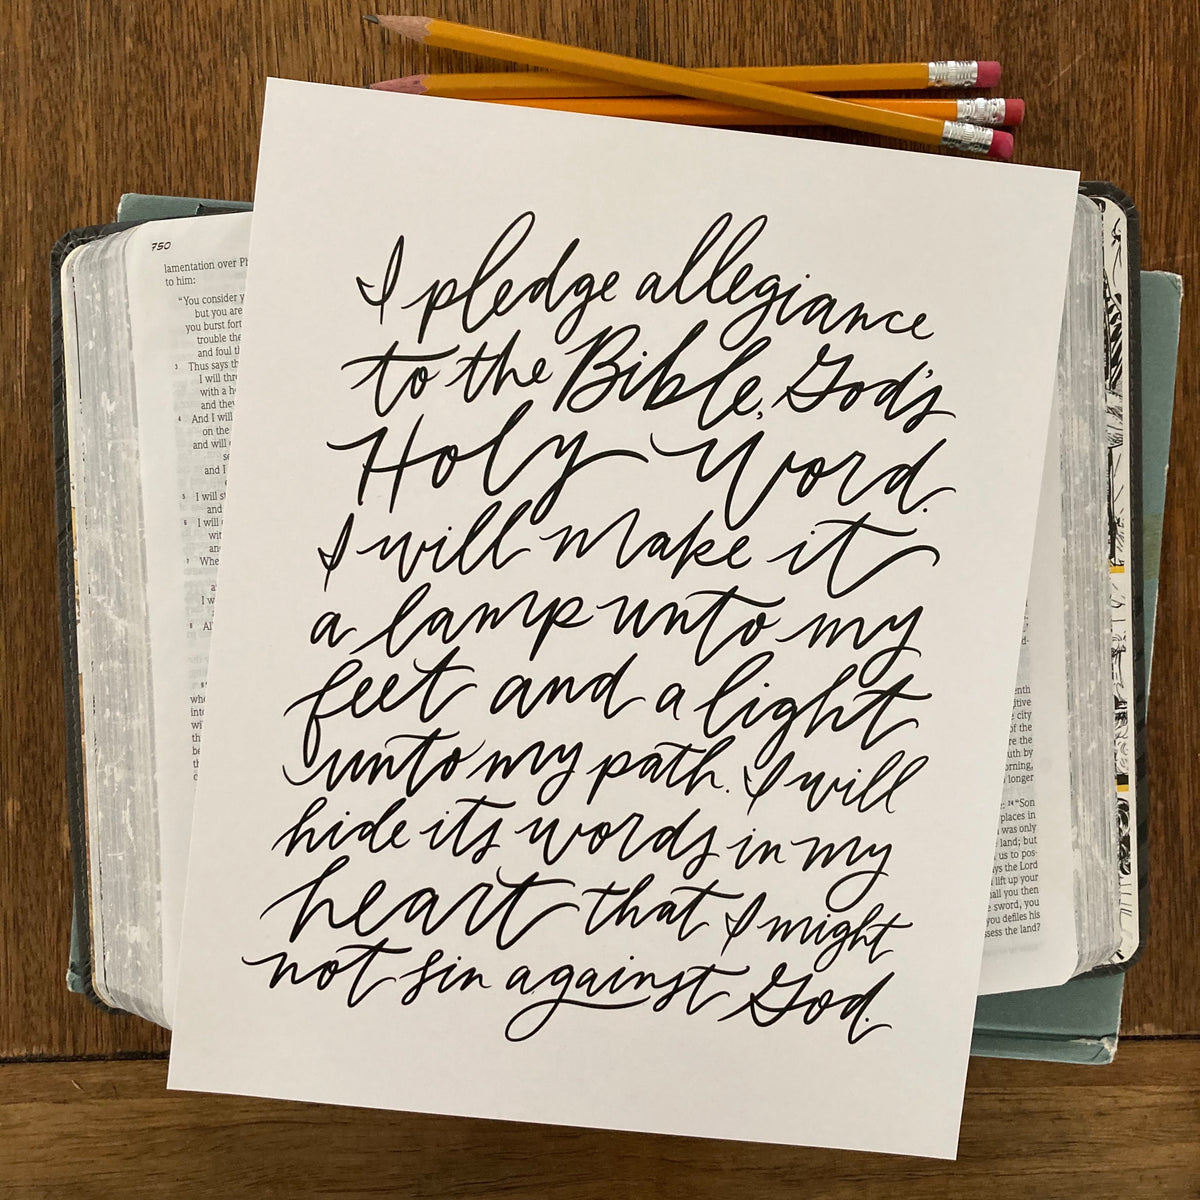 I pledge allegiance
to the Bible, God's
Holy Word.
I will make it
a lamp unto my
feet and a light
unto my path. I will
hide its words in my
heart that I might
not sin against God.
750
lamentation over Ph
to him:
"You consider y
but you are
you burst fort
trouble the
and foul th
3 Thus says th
I will thro
with a h
and they
4 And I will
on the
and will
se
and I
5 I will st
and
6 I will
wit
an
7 Whe
a
I w
8 Al
whe
into
wi
be
th
enth
itive
e city
of the
re the
uth by
orning,
longer
r: 24 "Son
places in
was only
land; but
us to pos-
ys the Lord
lift up your
hall you then
e sword, you
you defiles his
ssess the land?